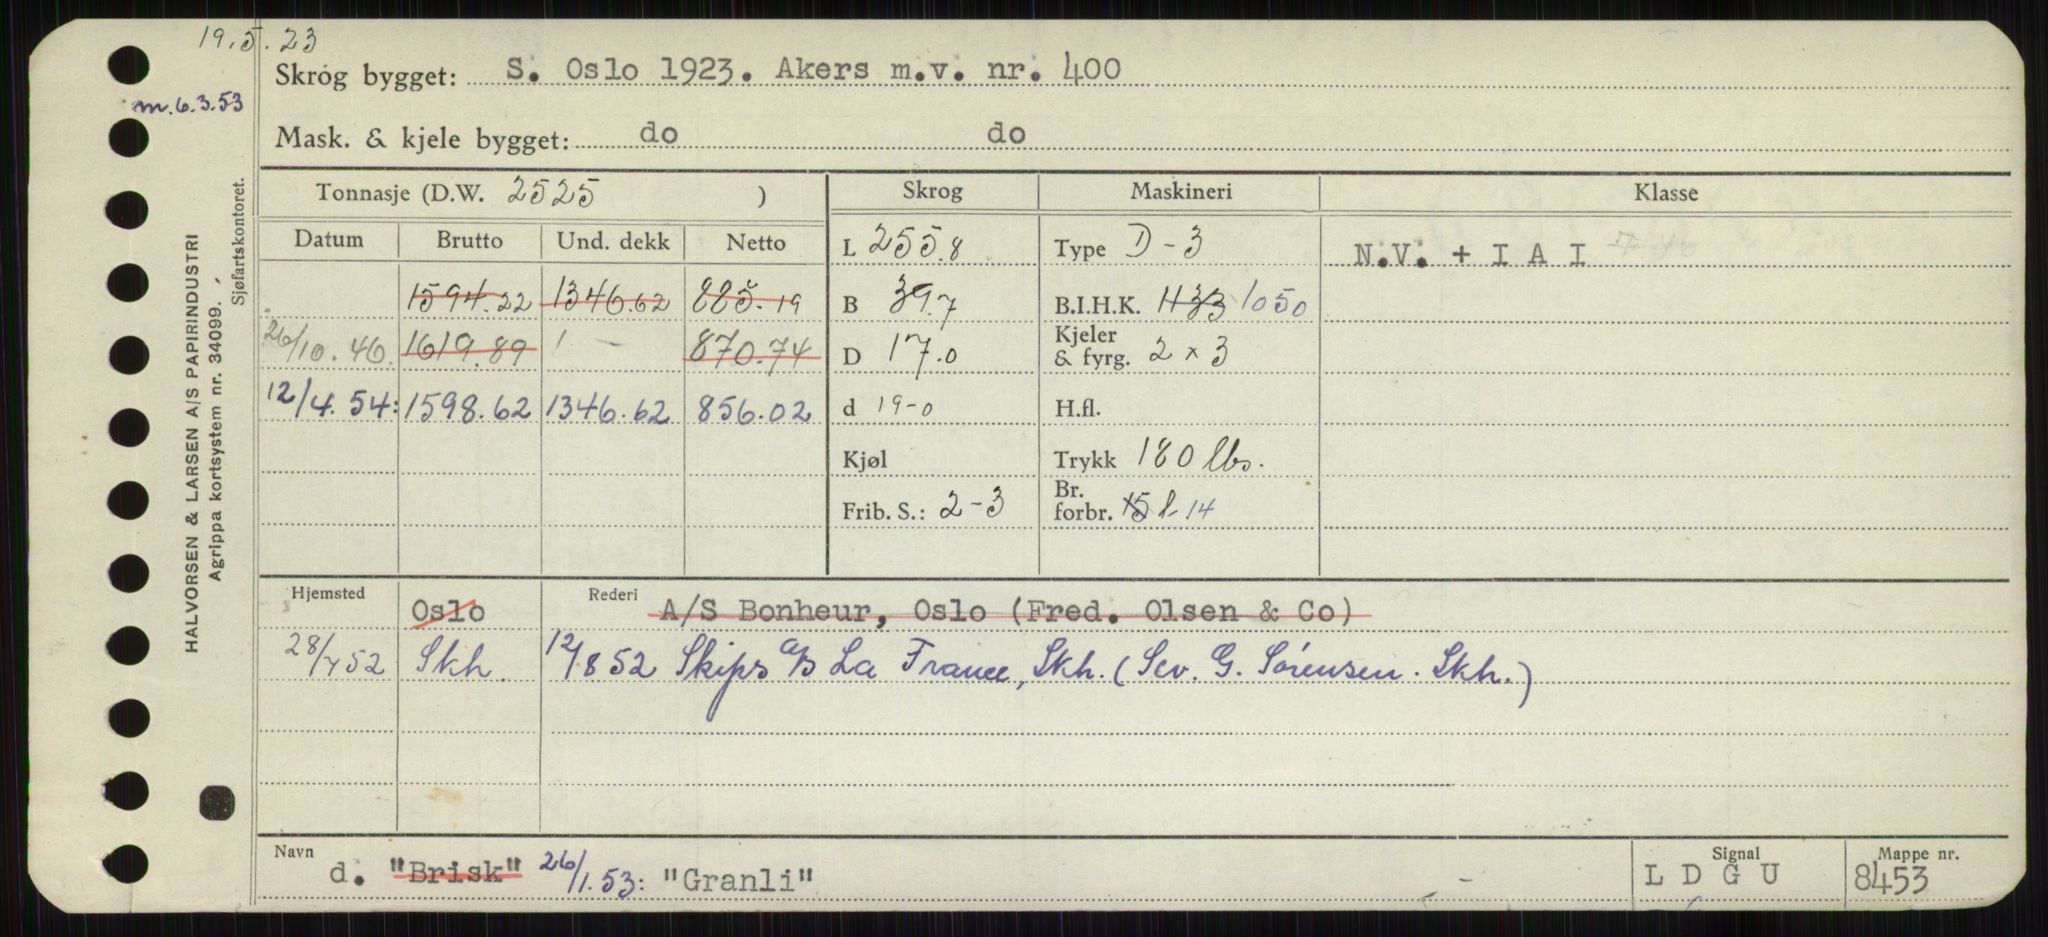 19.5.23
Skrog bygget: S. Oslo 1923. Akers m.v. nr. 400
m. 6.3.53
Mask. & kjele bygget: do do
Tonnasje (D.W. 2525 )
Skrog
Maskineri
Klasse
Datum Brutto Und. dekk Netto
L 255.8
Type D-3
N.V. + I A I
1594.22 1346.62 885.19
B 39.7
B.I.H.K. 1133 1050
26/10.46. 1619.89 1 - 870.74
D 17.0
Kjeler
& fyrg. 2 x 3
12/4.54: 1598.62 1346.62 856.02
d 19-0
H.fl.
Kjøl
Trykk 180 lbs.
Frib. S.: 2-3
Br.
forbr. 15 l 14
Hjemsted Oslo Rederi A/S Bonheur, Oslo (Fred. Olsen & Co)
28/7 52 Skh. 12/8 52 Skips a/s La France, Skh. (Sev. G. Sörensen. Skh.)
Navn d. "Brisk" 26/1.53: "Granli"
Signal
L D G U
Mappe nr.
8453
HALVORSEN & LARSEN A/S PAPIRINDUSTRI
Agrippa kortsystem nr. 34099.
Sjøfartskontoret.